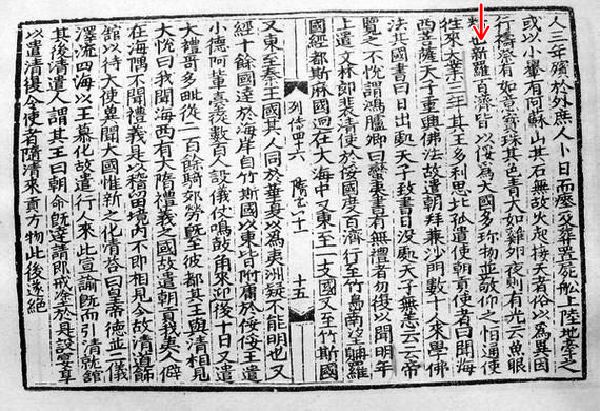 人三年殯於外庶人卜日而瘞及葬置屍船上陸地牽之
或以小轝有阿蘇山其石無故火起接天者俗以為異因
行禱祭有如意寶珠其色青大如雞卵夜則有光云魚眼
也新羅百濟皆以俀為大國多珎物並敬仰之恒通使
往來大業三年其王多利思北孤遣使朝貢使者曰聞海
西菩薩天子重興佛法故遣朝拜兼沙門數十人來學佛
法其國書曰日出處天子致書日沒處天子無恙云云帝
覽之不悅謂鴻臚卿曰蠻夷書有無禮者勿復以聞明年
上遣文林郎裴清使於俀國度百濟行至竹島南望羅
國經都斯麻國迥在大海中又東至一支國又至竹斯國
列傳四十六 隋書八十一 十五
又東至秦王國其人同於華夏以為夷洲疑不能明也又
經十餘國達於海岸自竹斯國以東皆附庸於俀俀王遣
小德阿輩臺從數百人設儀仗鳴鼓角來迎後十日又遣
大禮哥多毗從二百餘騎郊勞既至彼都其王與清相見
大悅曰我聞海西有大隋禮義之國故遣朝貢我夷人僻
在海隅不聞禮義是以稽留境內不即相見今故清道飾
館以待大使冀聞大國惟新之化清答曰皇帝德並二儀
澤流四海以王慕化故遣行人來此宣諭既而引清就館
其後清遣人謂其王曰朝命既達請即戒塗於是設宴享
以遣清復令使者隨清來貢方物此後遂絕